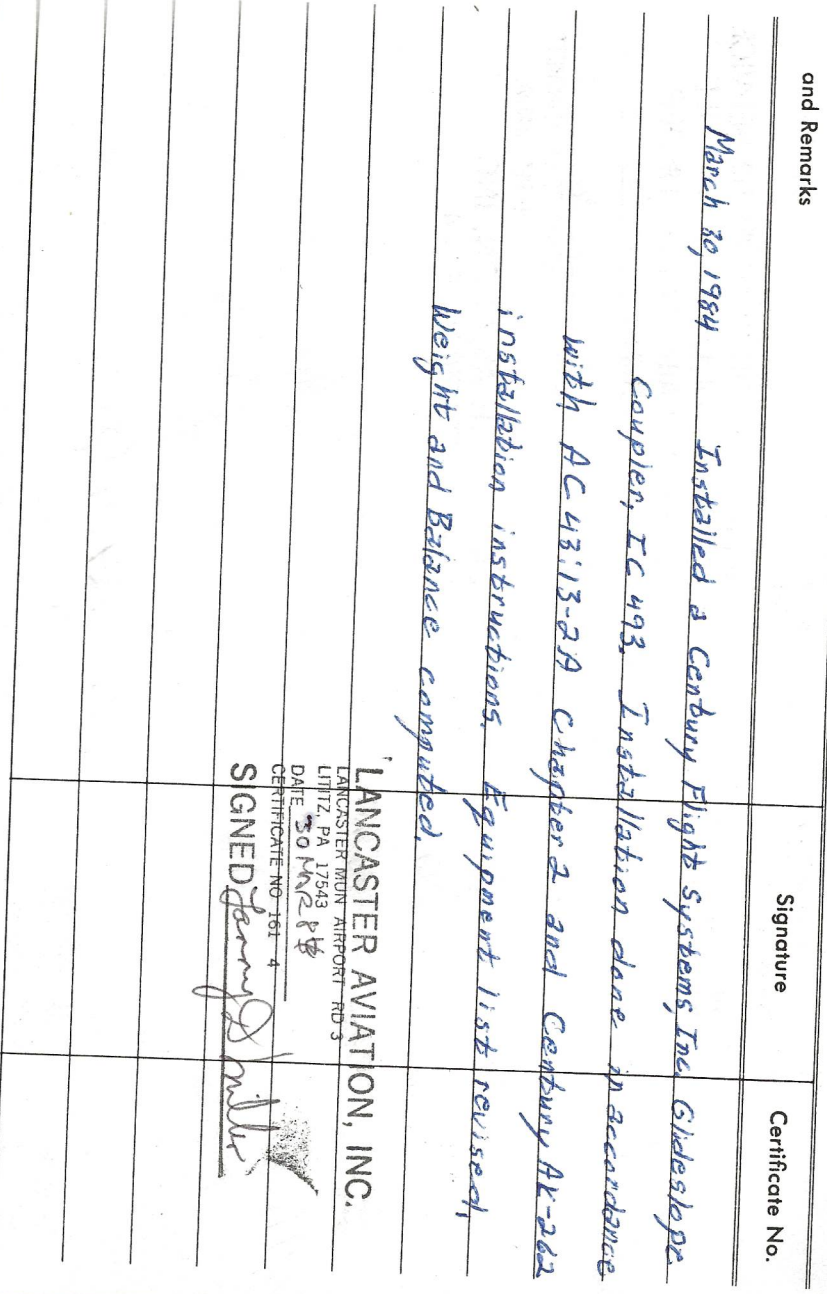 and Remarks Signature Certificate No.
March 30, 1984 Installed a Century Flight Systems, Inc. Glideslope
Coupler, IC 493. Installation done in accordance
with AC 43:13-2A Chapter 2 and Century AK-262
installation instructions. Equipment list revised,
Weight and Balance computed.
LANCASTER AVIATION, INC.
LANCASTER MUN AIRPORT RD 3
LITITZ, PA 17543
DATE 30 MAR 84
CERTIFICATE NO 161 4
SIGNED Lanny D Miller